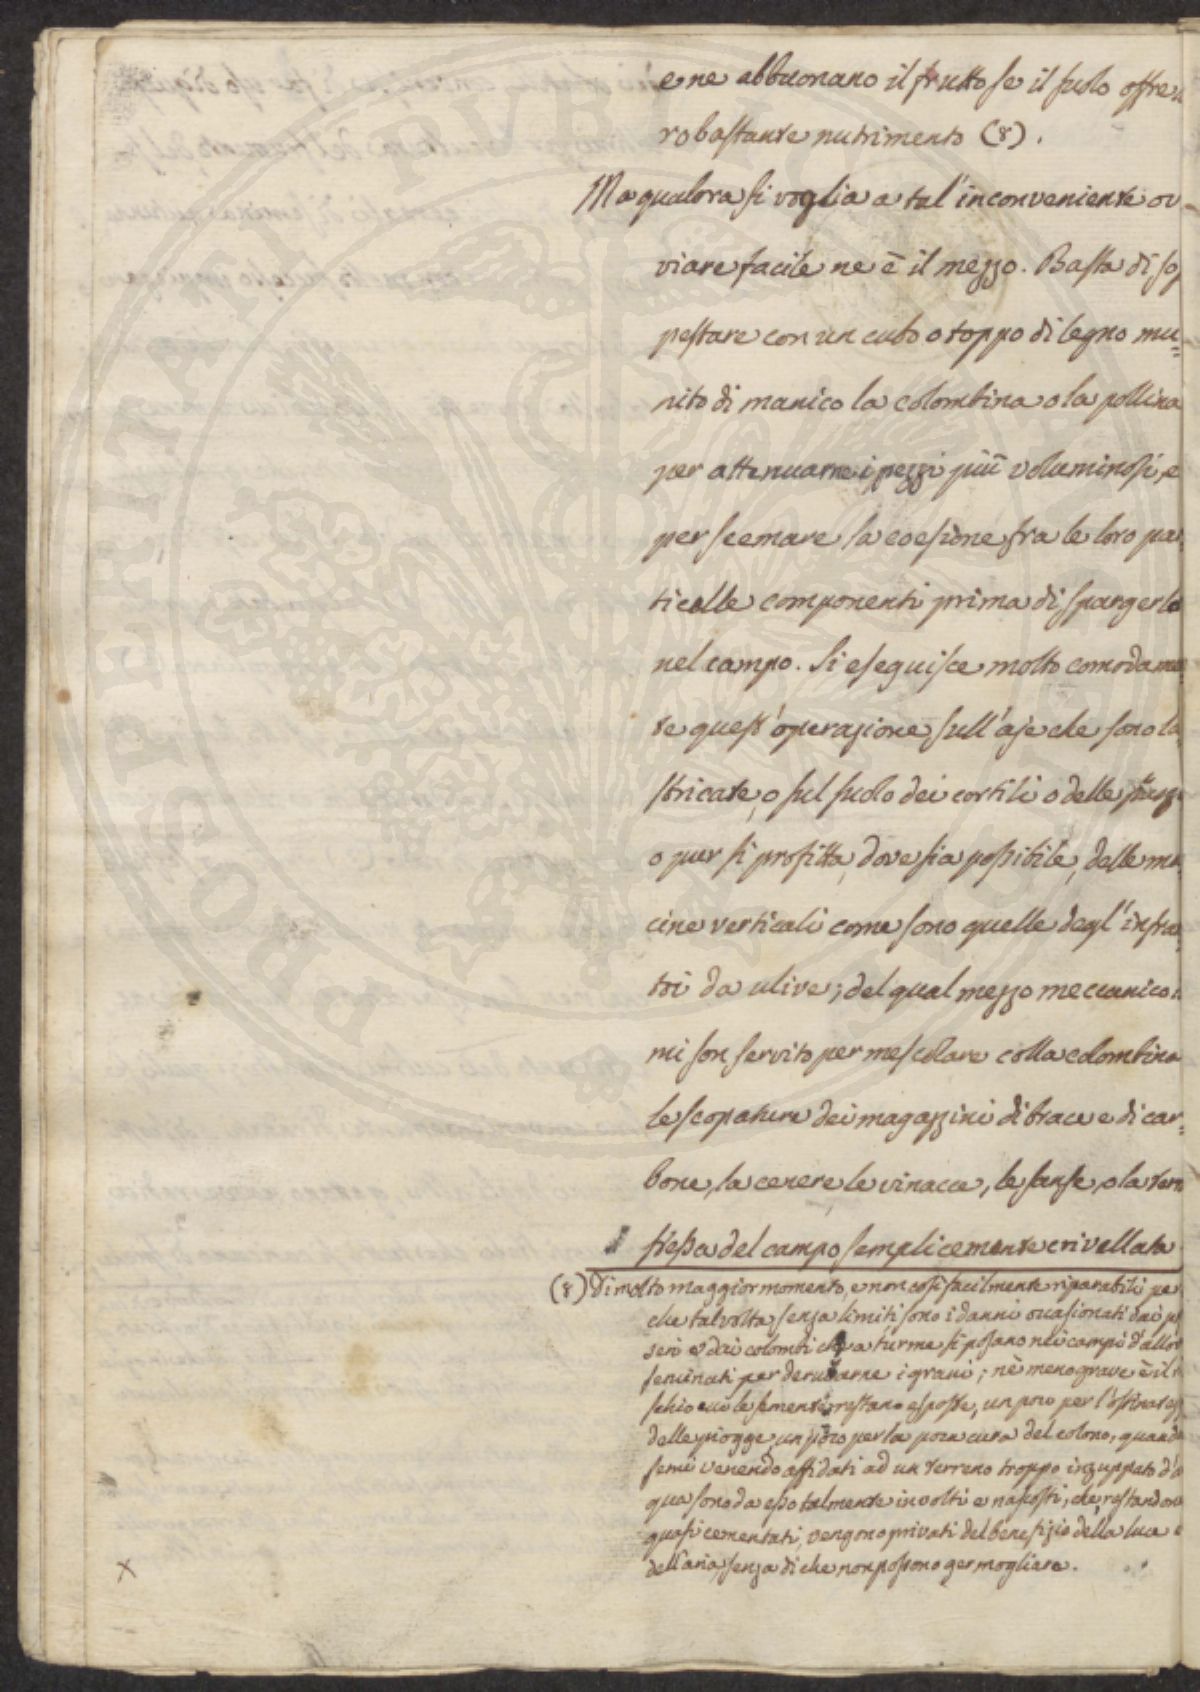 e ne abbuonano il frutto se il suolo offre
ro bastante nutrimento (8).
Ma qualora si voglia a tal'inconveniente ov
viare facile ne è il mezzo. Basta di sop
pestare con un cubo o toppo di legno mu=
nito di manico la colombina o la pollina
per attenuarne i pezzi più voluminosi, e
per scemare la coesione fra le loro par
ticelle componenti prima di spargerla
nel campo. Si eseguisce molto comodamen
te quest'operazione sull'aje che sono la
stricate, o sul suolo dei cortili o delle
o pur si profitta, dove sia possibile, delle ma
cine verticali come sono quelle degl'infran
toi da ulive; del qual mezzo meccanico
mi son servito per mescolare colla colombina
le scopature dei magazzini di brace e di car=
bone, la cenere le vinacce, le sanse, o la terra
stessa del campo semplicemente crivellata
(8) Di molto maggior momento, e non così facilmente riparabili per
che talvolta senza limiti sono i danni occasionati dai pas
seri e dai colombi che a turme si posano nei campi d'allor
seminati per derubarne i grani; nè meno grave è il ri
schio cui le sementi restano esposte, un poco per l'
delle piogge, un poco per la poca cura del colono, quando
semi venendo affidati ad un terreno troppo inzuppato d'ac
qua sono da esso talmente involti e nascosti, che, restandone
quasi cementati, vengono privati del benefizio della luce e
dell'aria, senza di che non possono germogliare.
X
PROSPERITATI PUBLICAE